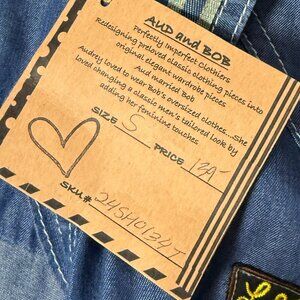 AUD and BOB
Perfectly Imperfect Clothiers
Redesigning preloved classic clothing pieces into
original elegant wardrobe pieces
Aud married Bob
Audry loved to wear Bob's oversized clothes...She
loved changing a classic men's tailored look by
adding her feminine touches
SIZE S PRICE 134-
SKU# 24SH0134T